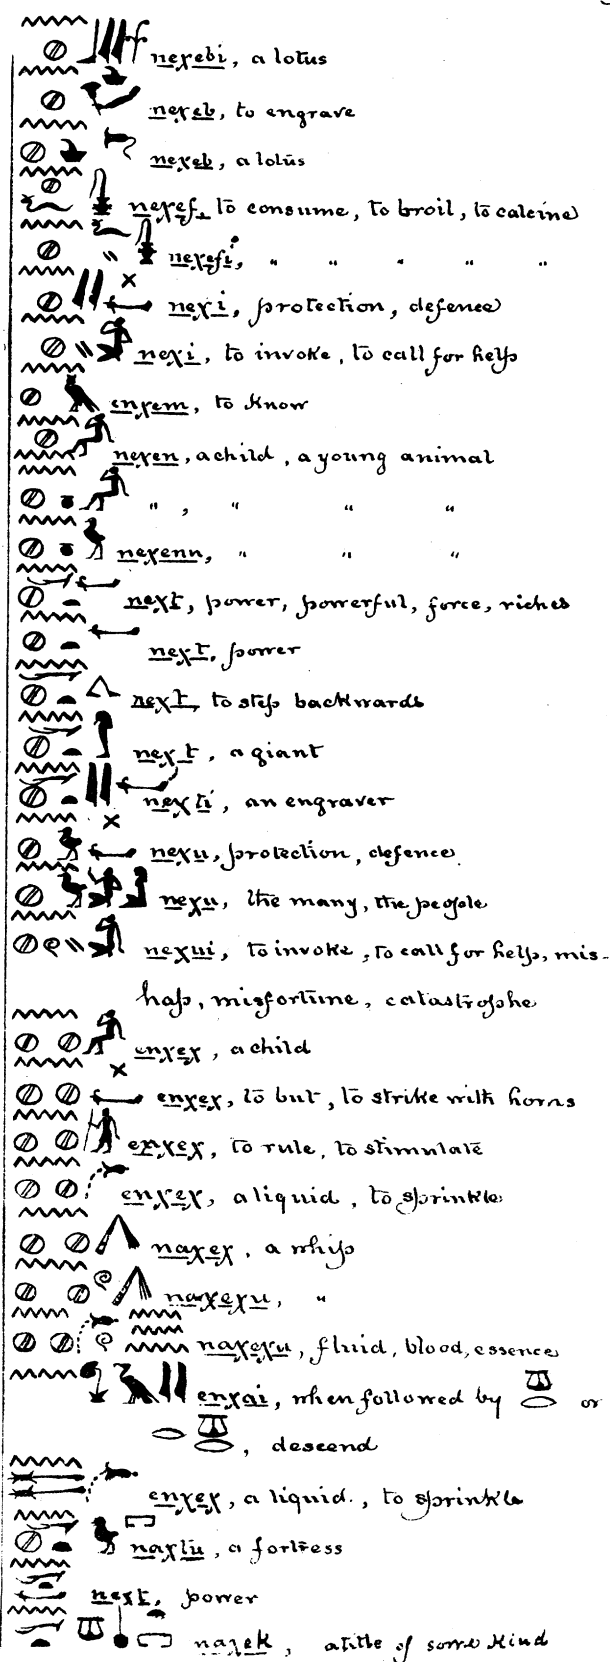 nexebi, a lotus
nexeb, to engrave
nexeb, a lotus
nexef, to consume, to broil, to calcine
nexefi, " " " " "
nexi, protection, defence
nexi, to invoke, to call for help
enxem, to know
nexen, a child, a young animal
" , " " "
nexenn, " " "
next, power, powerful, force, riches
next, power
next, to step backwards
next, a giant
nexti, an engraver
nexu, protection, defence
nexu, the many, the people
nexui, to invoke, to call for help, mis-
hap, misfortune, catastrophe
enxex, a child
enxex, to but, to strike with horns
enxex, to rule, to stimulate
enxex, a liquid, to sprinkle
naxex, a whip
naxexu, "
naxexu, fluid, blood, essence
enxai, when followed by or
, descend
enxex, a liquid., to sprinkle
naxtu, a fortress
next, power
naxek, a title of some kind